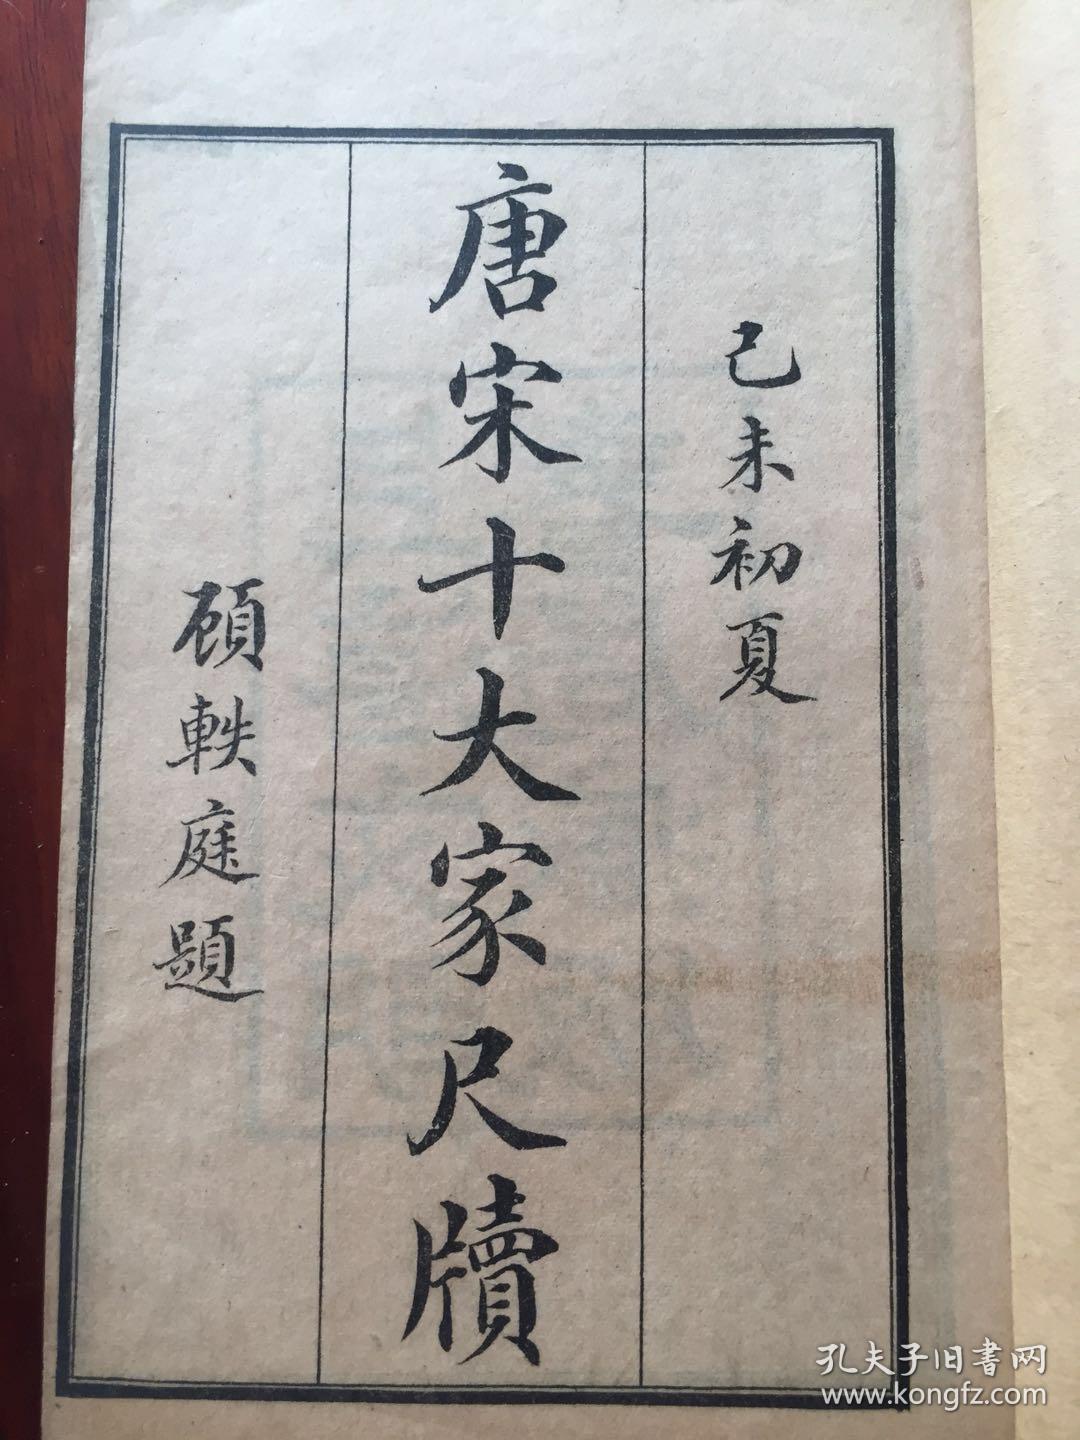 己未初夏
唐宋十大家尺牘
顧軼庭題
孔夫子旧書网
www.kongfz.com